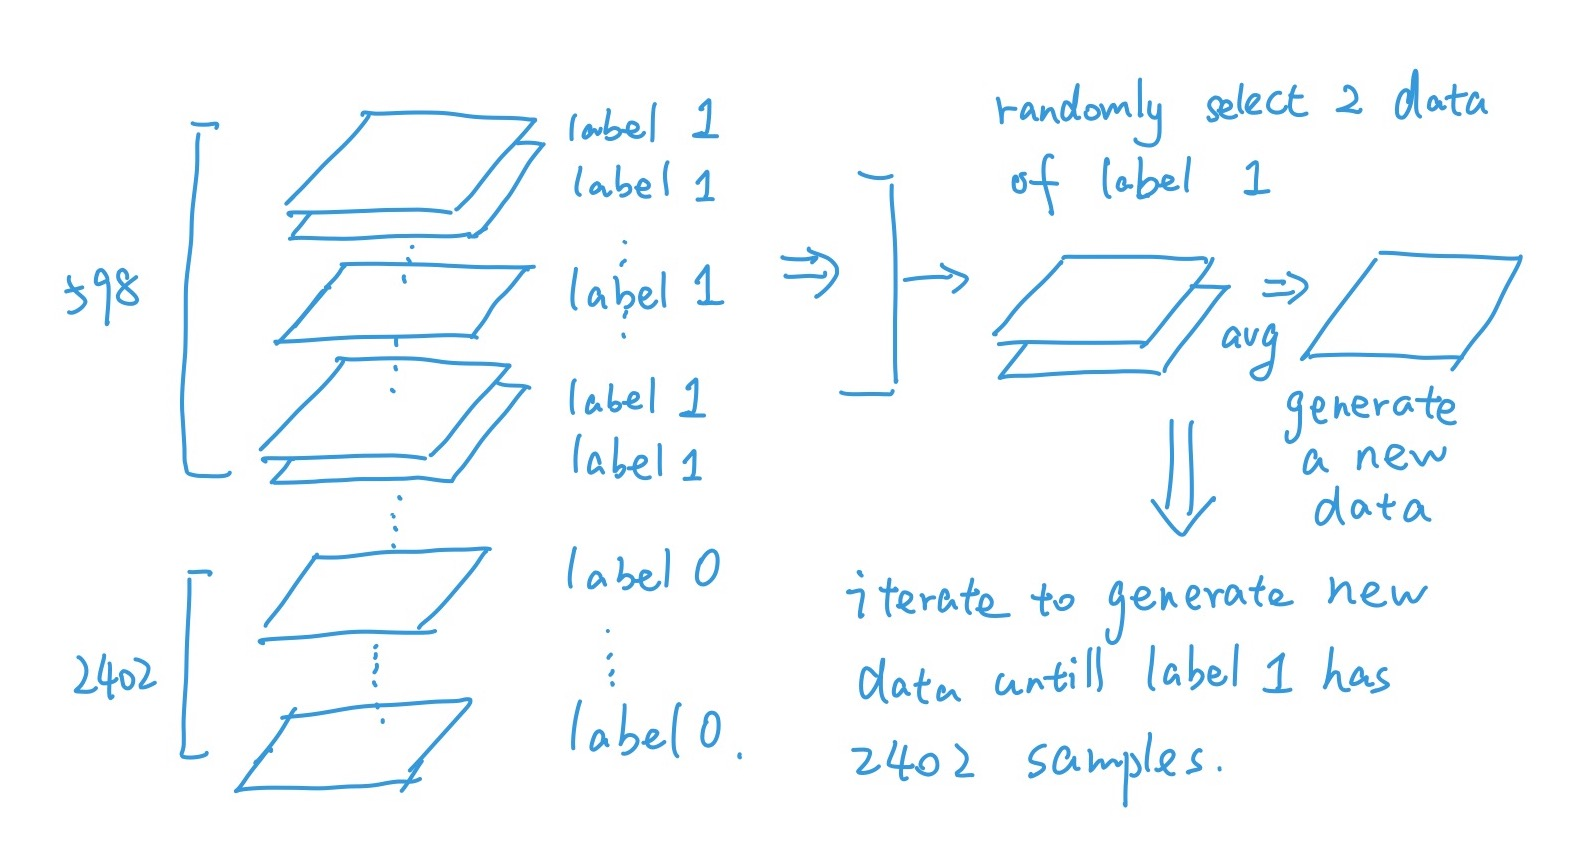 label 1
label 1
598
label 1
label 1
label 1
label 0
2402
label 0.
randomly select 2 data
of label 1
avg
generate
a new
data
iterate to generate new
data untill label 1 has
2402 samples.